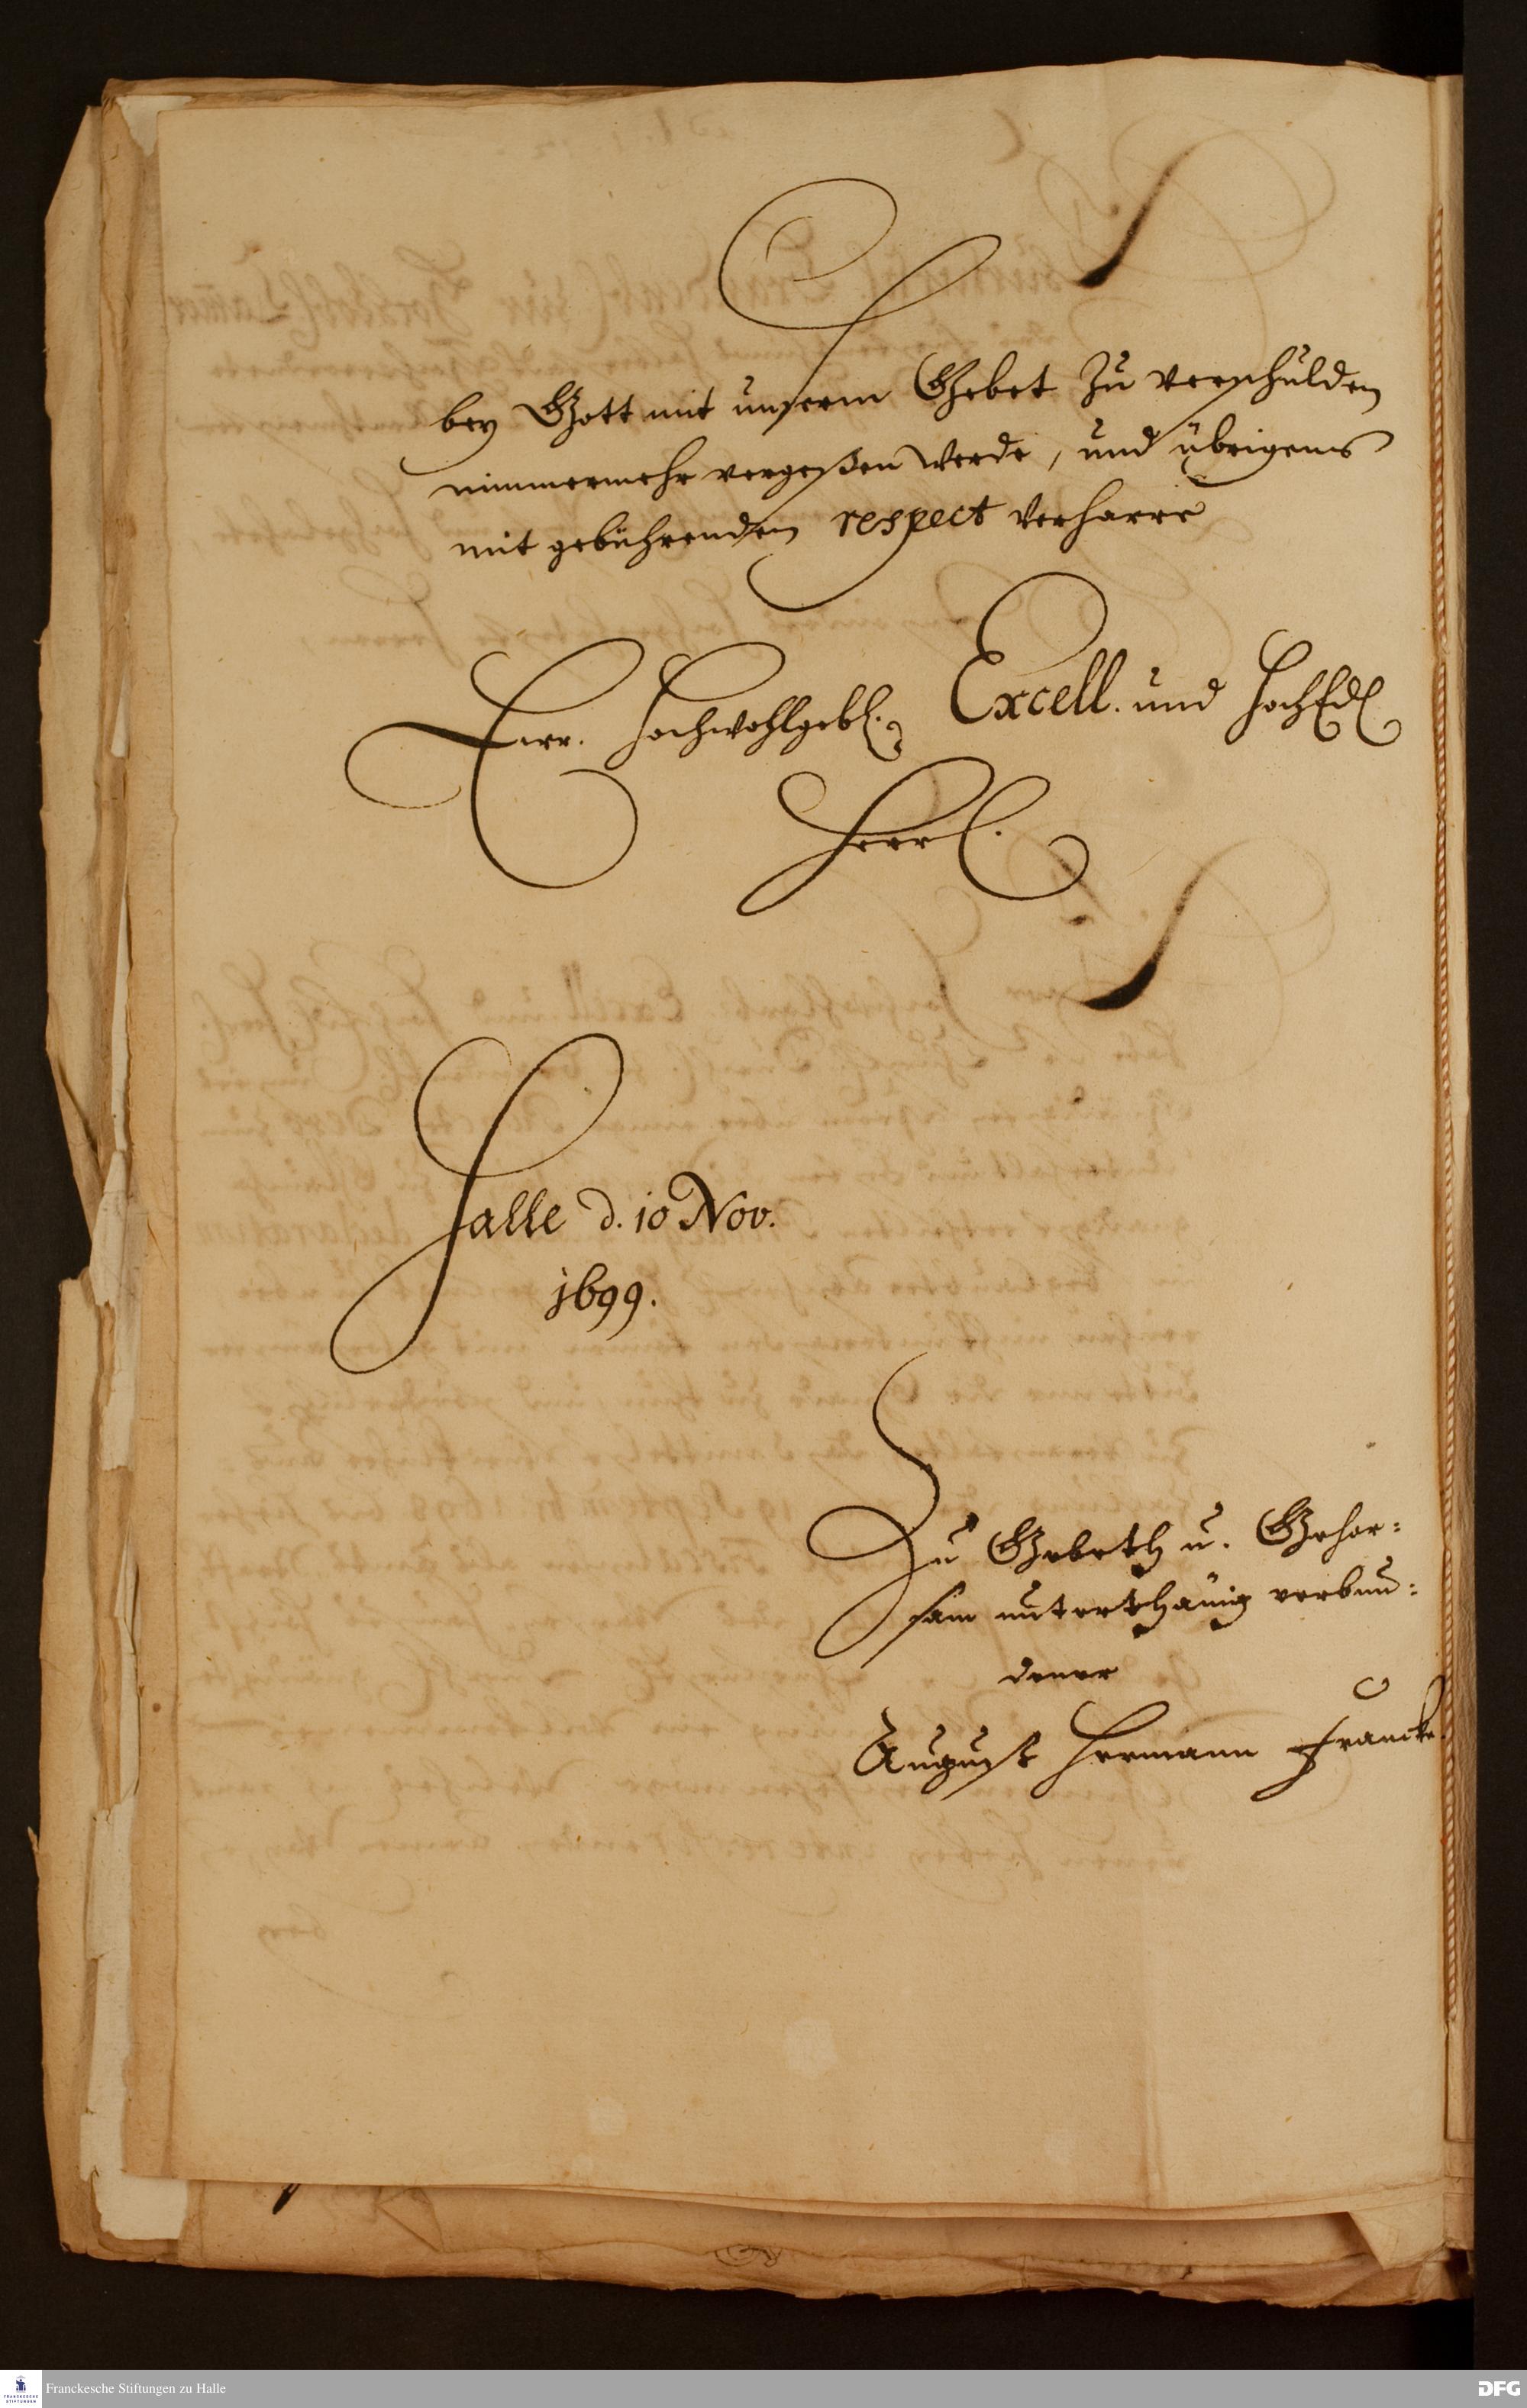 bey Gott mit unserm Gebet zu verschulden
nimmermehr vergeßen werde, und übrigens
mit gebührenden respect verharre
Ewr. Hochwohlgebl. Excell. und HochEdl
Herrl.
Halle d. 10 Nov.
1699.
Zu Gebeth u. Gehor:
sam unterthänig verbun:
dener
August Hermann Francke.
FRANCKESCHE
STIFTUNGEN
Franckesche Stiftungen zu Halle
DFG